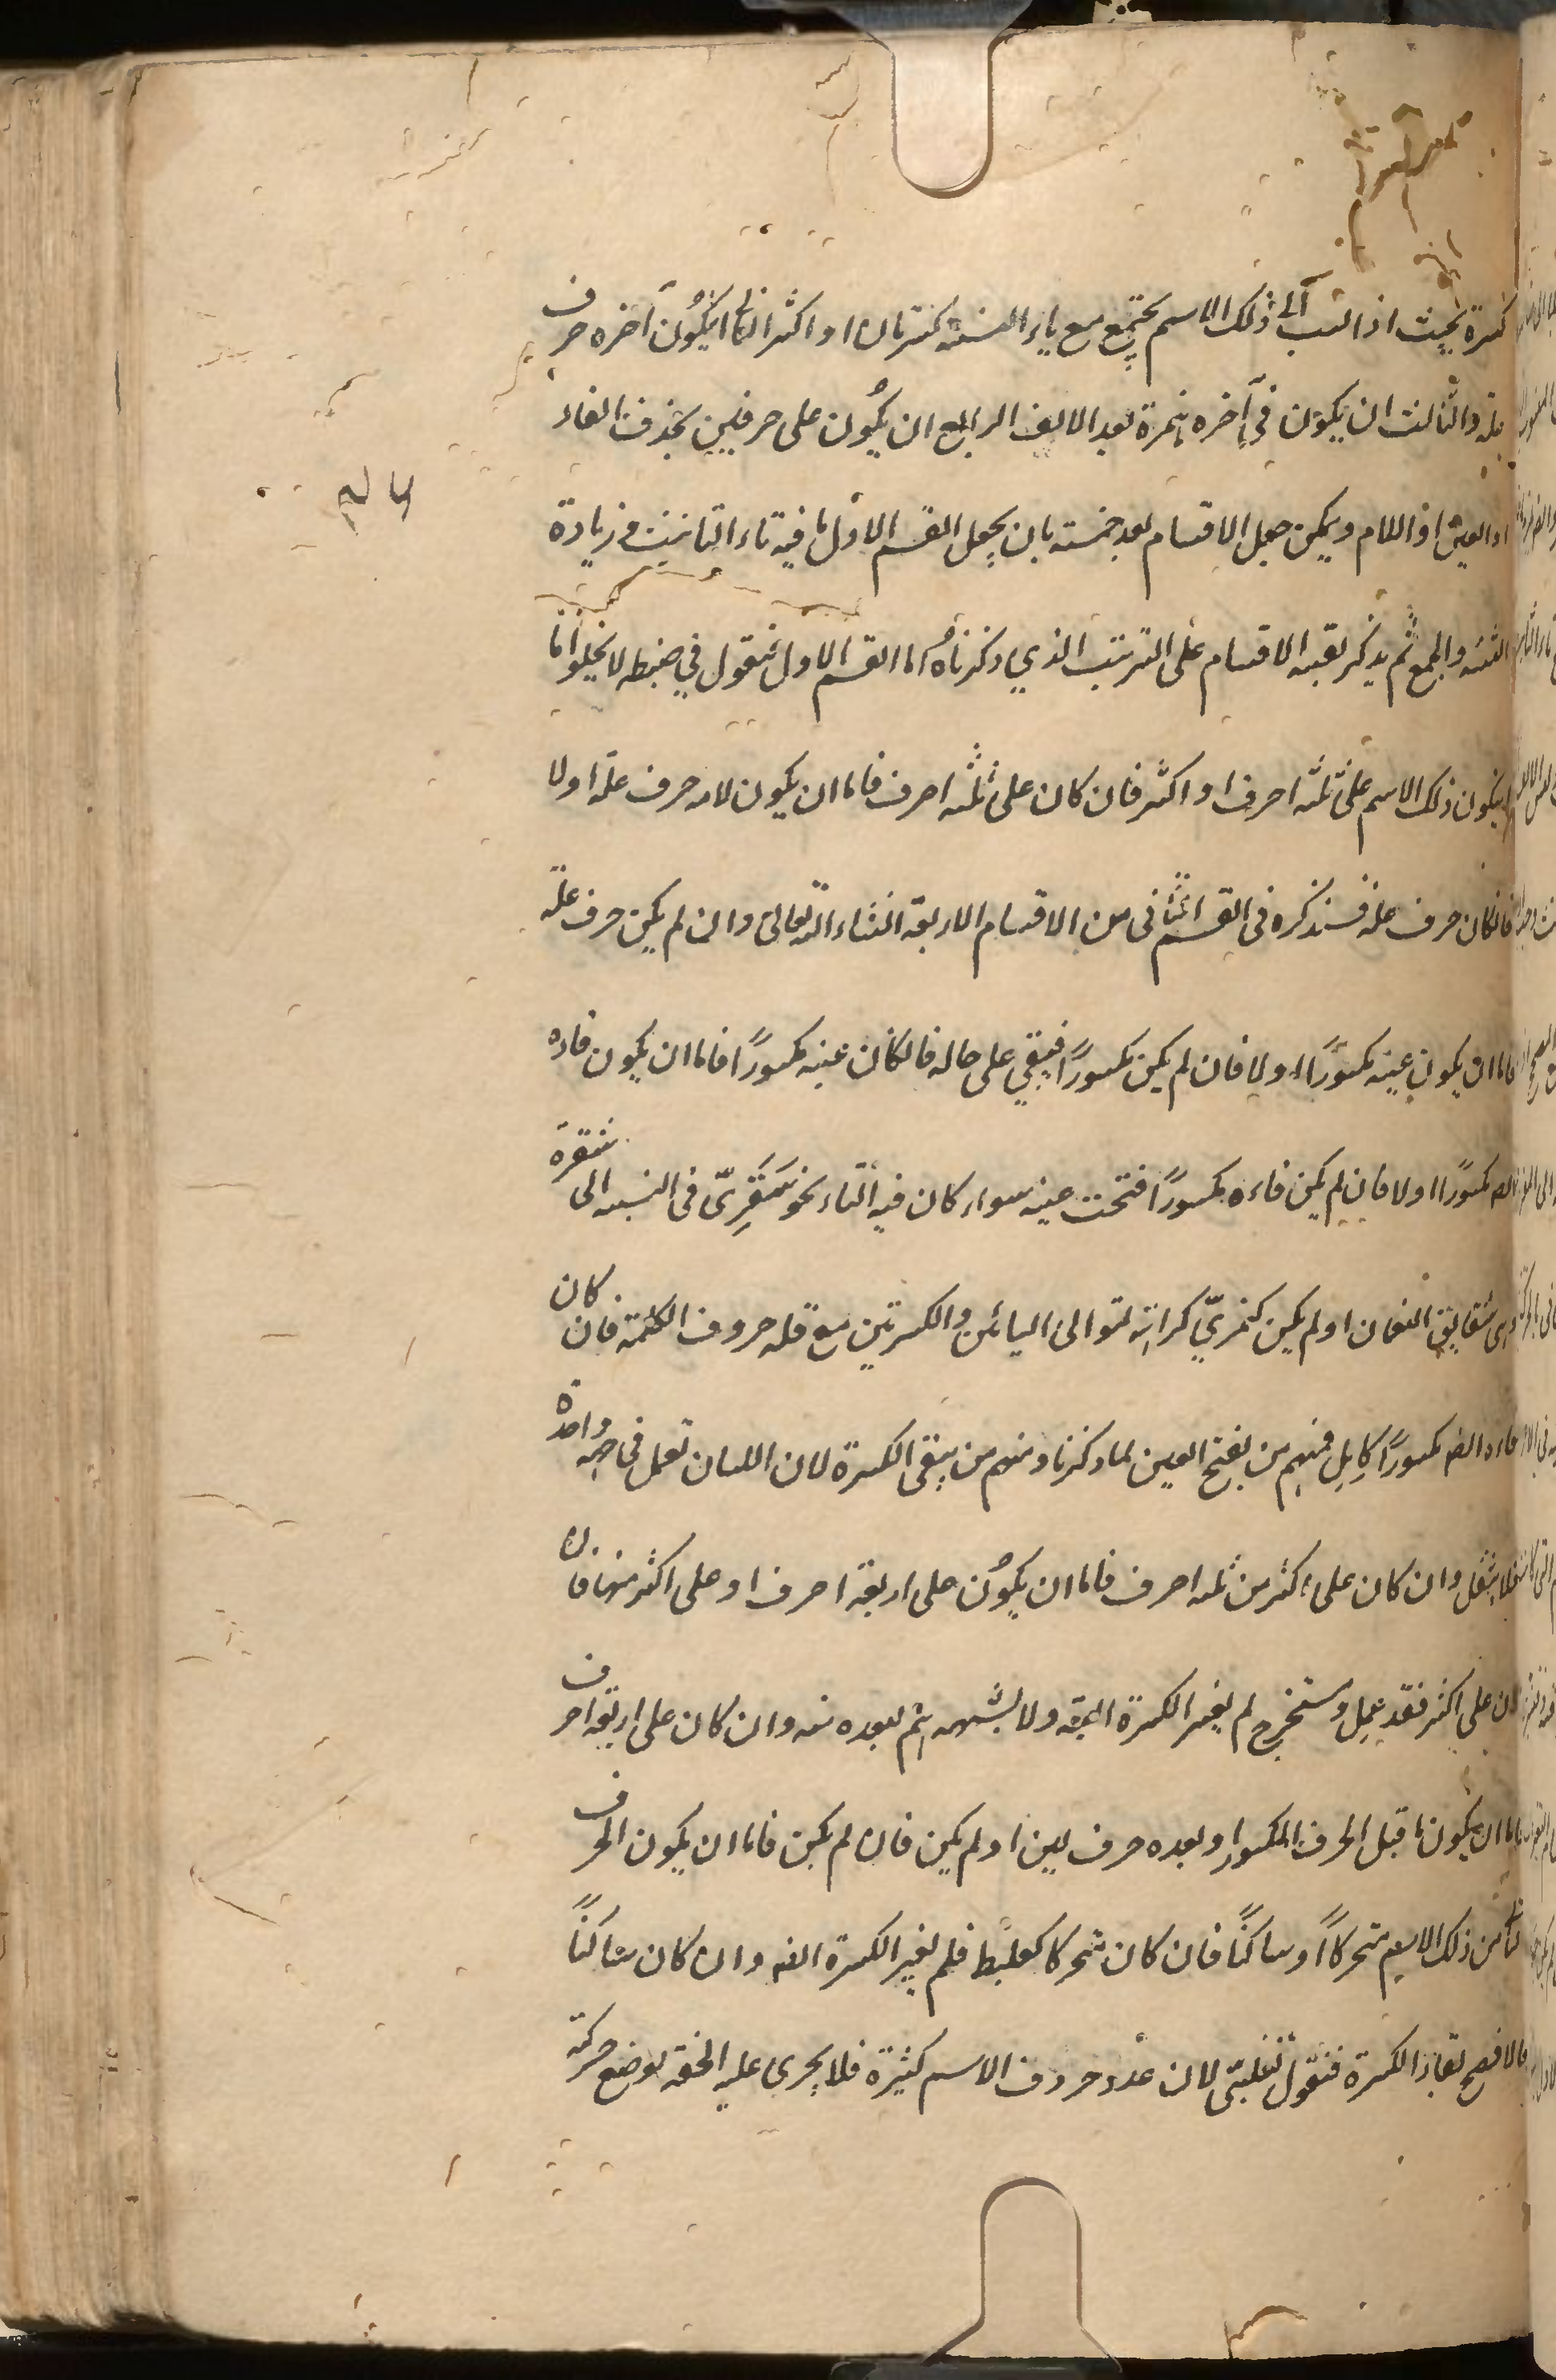 كسرة بحيث اذا نسب الى ذلك الاسم يجتمع مع ياء النسبة كسرتان او اكثر الثاني ان يكون آخره حرف
علة والثالث ان يكون في آخره همزة بعد الالف الرابع ان يكون على حرفين بحذف الفاء
او العين او اللام ويمكن جعل الاقسام بعد خمسة بان يجعل القسم الاول ما فيه تاء التانيث وزيادة
التثنية والجمع ثم يذكر بقية الاقسام على الترتيب الذي ذكرناه اما القسم الاول فنقول في ضبطه لا يخلو اما
ان يكون ذلك الاسم على ثلثة احرف او اكثر فان كان على ثلثة احرف فاما ان يكون لامه حرف علة اولا
فان كان حرف علة فسنذكره في القسم الثاني من الاقسام الاربعة انشاء الله تعالى وان لم يكن حرف علة
فاما ان يكون عينه مكسورًا اولا فان لم يكن مكسورًا فيبقي على حاله فان كان عينه مكسورًا فاما ان يكون فاؤه
ايضا مكسورًا اولا فان لم يكن فاءه مكسورًا فتحت عينه سواء كان فيه التاء نحو شَقَرِىّ في النسبة الى شقرة
وهي شقايق النعمان او لم يكن كنمريّ كراهة لتوالى اليائين والكسرتين مع قلة حروف الكلمة فان كان
فاءه ايضا مكسورًا كاِبِل فمنهم من يفتح العين لما ذكرنا ومنهم من يبقى الكسرة لان اللسان تعمل في جهة واحدة
فلا يثقل وان كان على اكثر من ثلثة احرف فاما ان يكون على اربعة احرف او على اكثر منها فان
كان على اكثر فقد عمل ومستخرج لم يغير الكسرة البتة ولا بشبهه ثم بعده منه وان كان على اربعة احرف
فاما ان يكون ما قبل الحرف المكسور او بعده حرف لين او لم يكن فان لم يكن فاما ان يكون الحرف
من ذلك الاسم متحركًا او ساكنًا فان كان متحركا كعلبط فلم يغير الكسرة ايضا وان كان ساكنًا
فالافصح بقاء الكسرة فنقول تغلبىّ لان عدد حروف الاسم كثيرة فلا يجرى عليه الخفة بوضع حركة